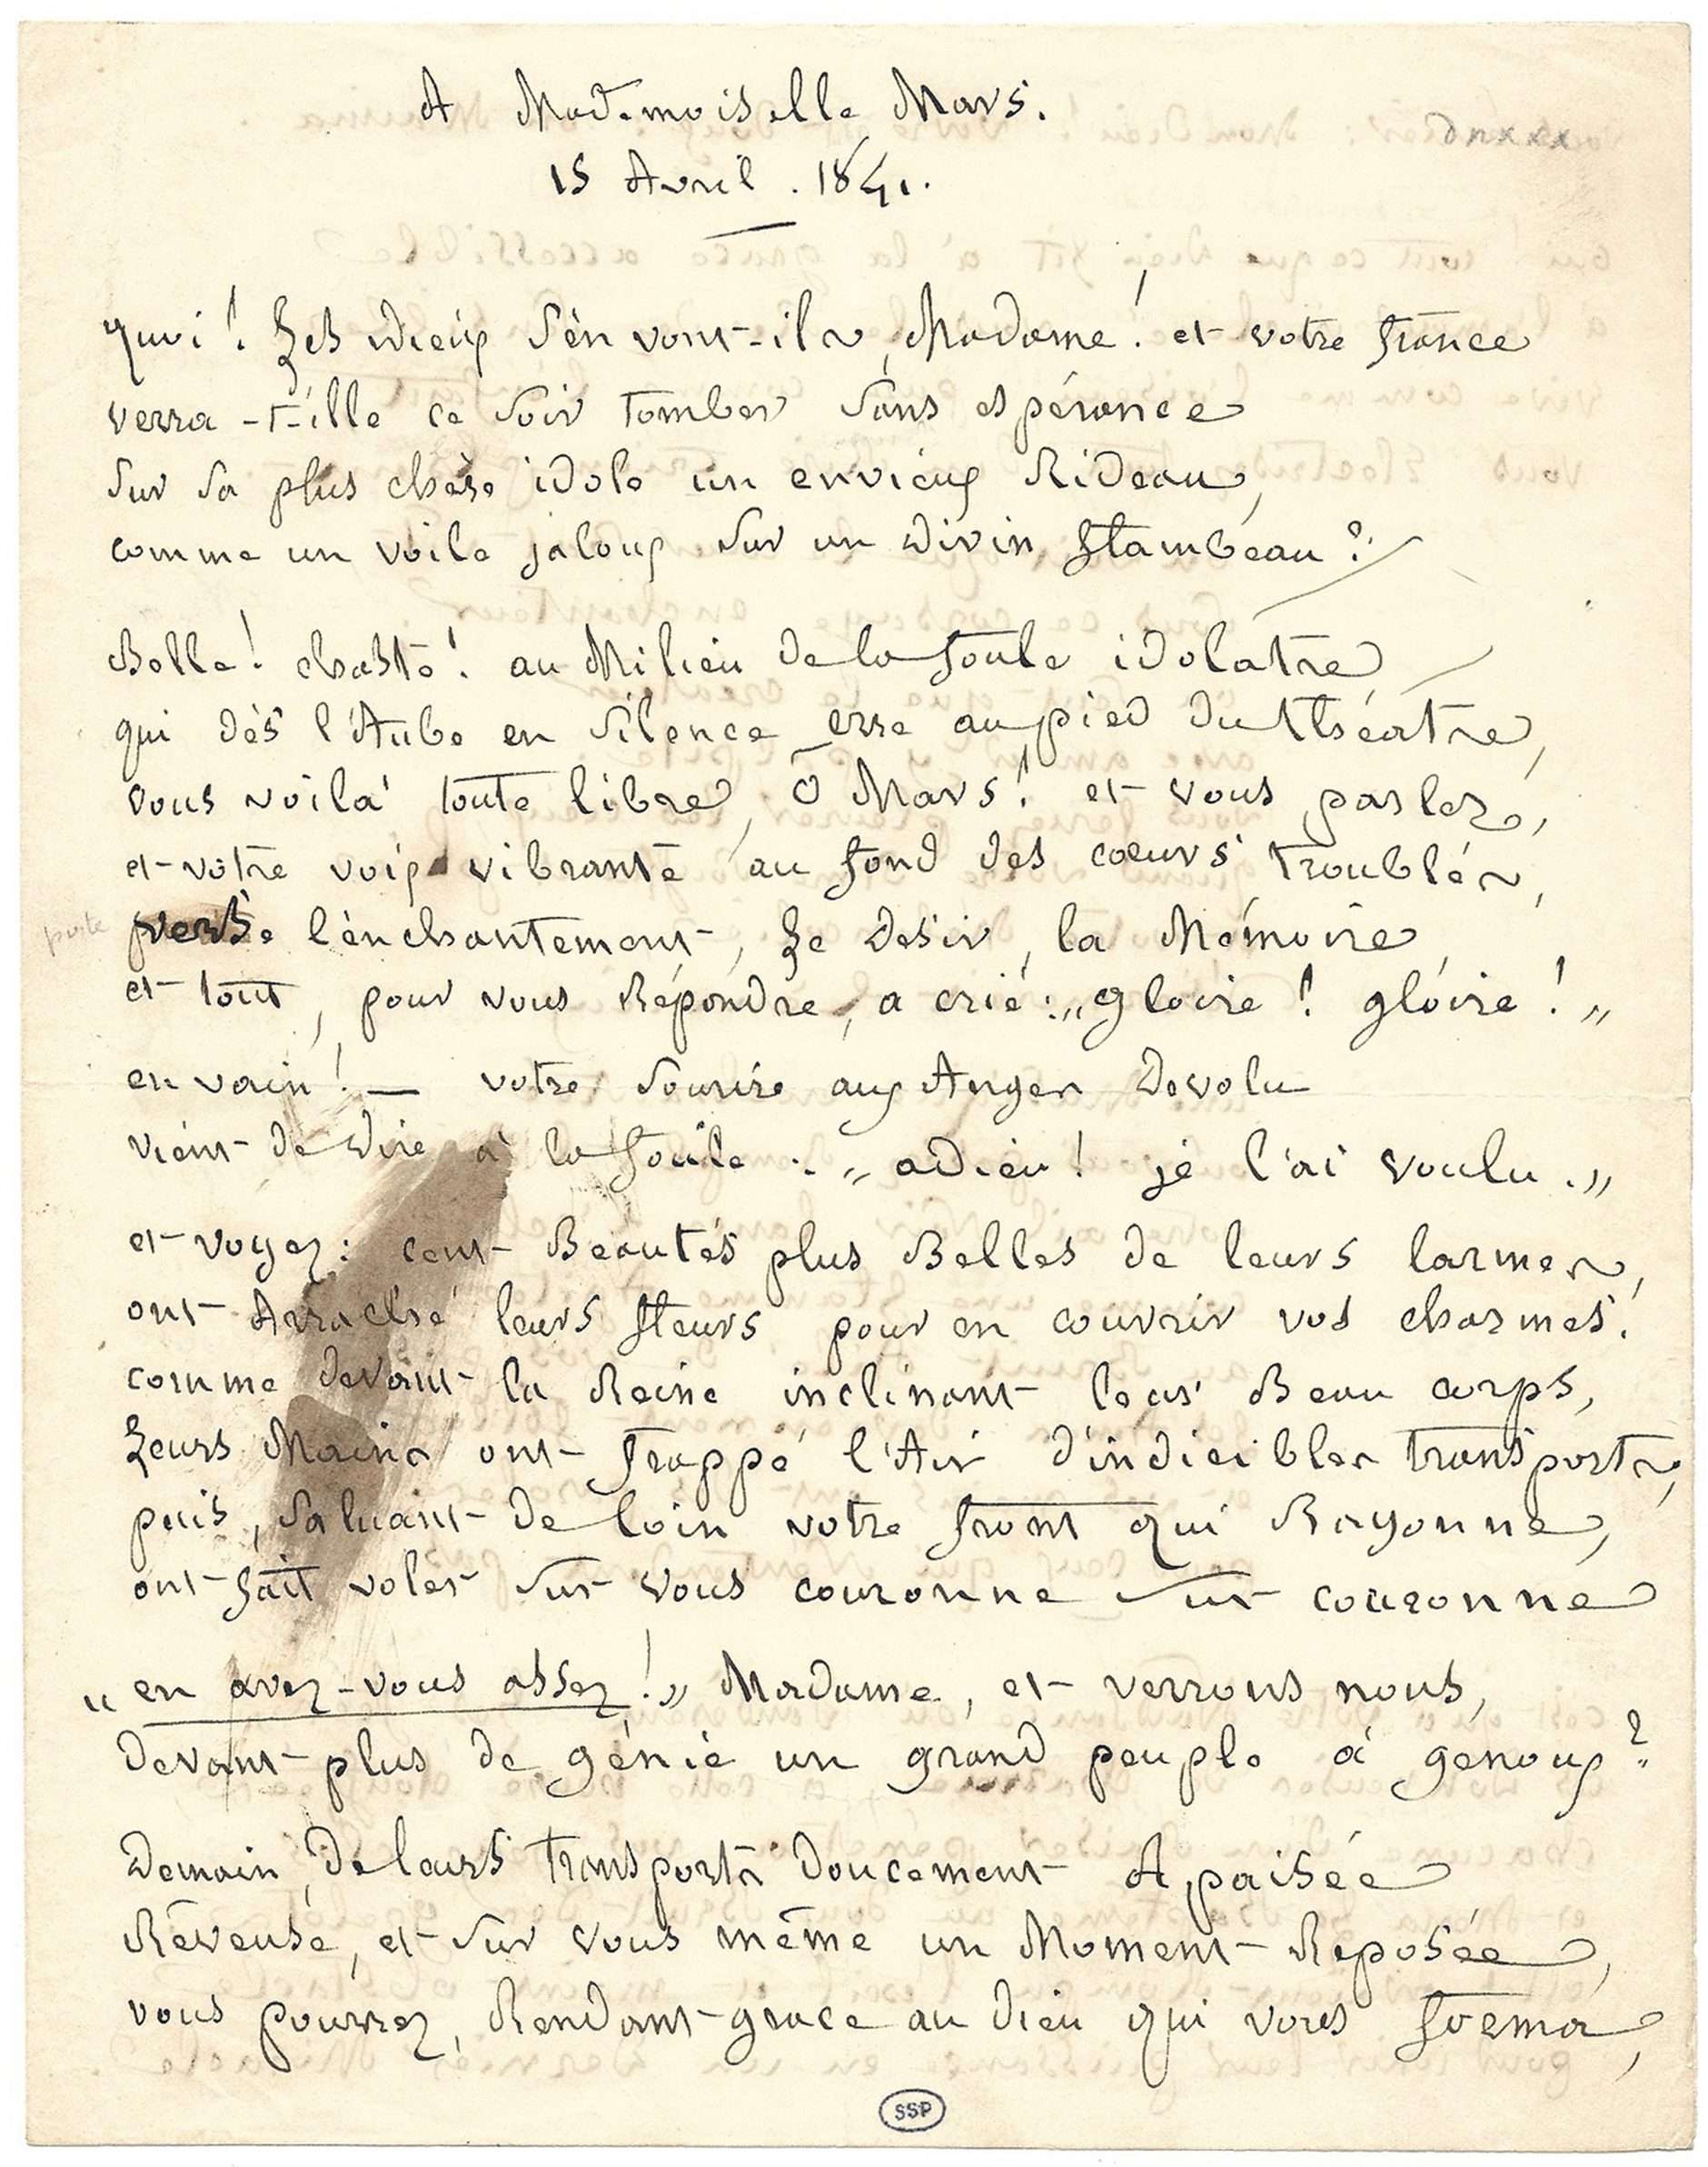 A Mademoiselle Mars.
dnxxx
15 Avril . 1841.
quoi ! Les dieux s'en vont-ils, Madame ! et votre france
verra-t-elle ce soir tomber sans espérance
sur sa plus chère idole un envieux Rideau,
comme un voile jaloux sur un divin flambeau ?
Belle ! chaste ! au Milieu de la foule idolâtre
qui dès l'Aube en silence erre au pied du théâtre,
vous voilà toute libre, Ô Mars ! et vous parlez,
et votre voix vibrante au fond des coeurs troublés,
porte
verse l'enchantement, Le désir, la Mémoire,
et tout, pour vous Répondre, a crié : „gloire ! gloire ! „
en vain ! — votre sourire aux Anges dévolu
vient de dire à la foule : „ adieu ! je l'ai voulu . „
et voyez : cent Beautés plus Belles de leurs larmes,
ont Arraché leurs fleurs pour en couvrir vos charmes !
comme devant la Reine inclinant leur Beau corps,
Leurs Mains ont frappé l'Air d'indicibles transports,
puis, saluant de loin votre front qui Rayonne,
ont fait voler sur vous couronne sur couronne
„ en avez-vous assez ! „ Madame, et verrons nous,
devant plus de génie un grand peuple à genoux ?
demain, de leurs transports doucement Apaisée
Rêveuse, et sur vous même un Moment Reposée,
vous pourrez, Rendant grace au dieu qui vous forma,
SSP